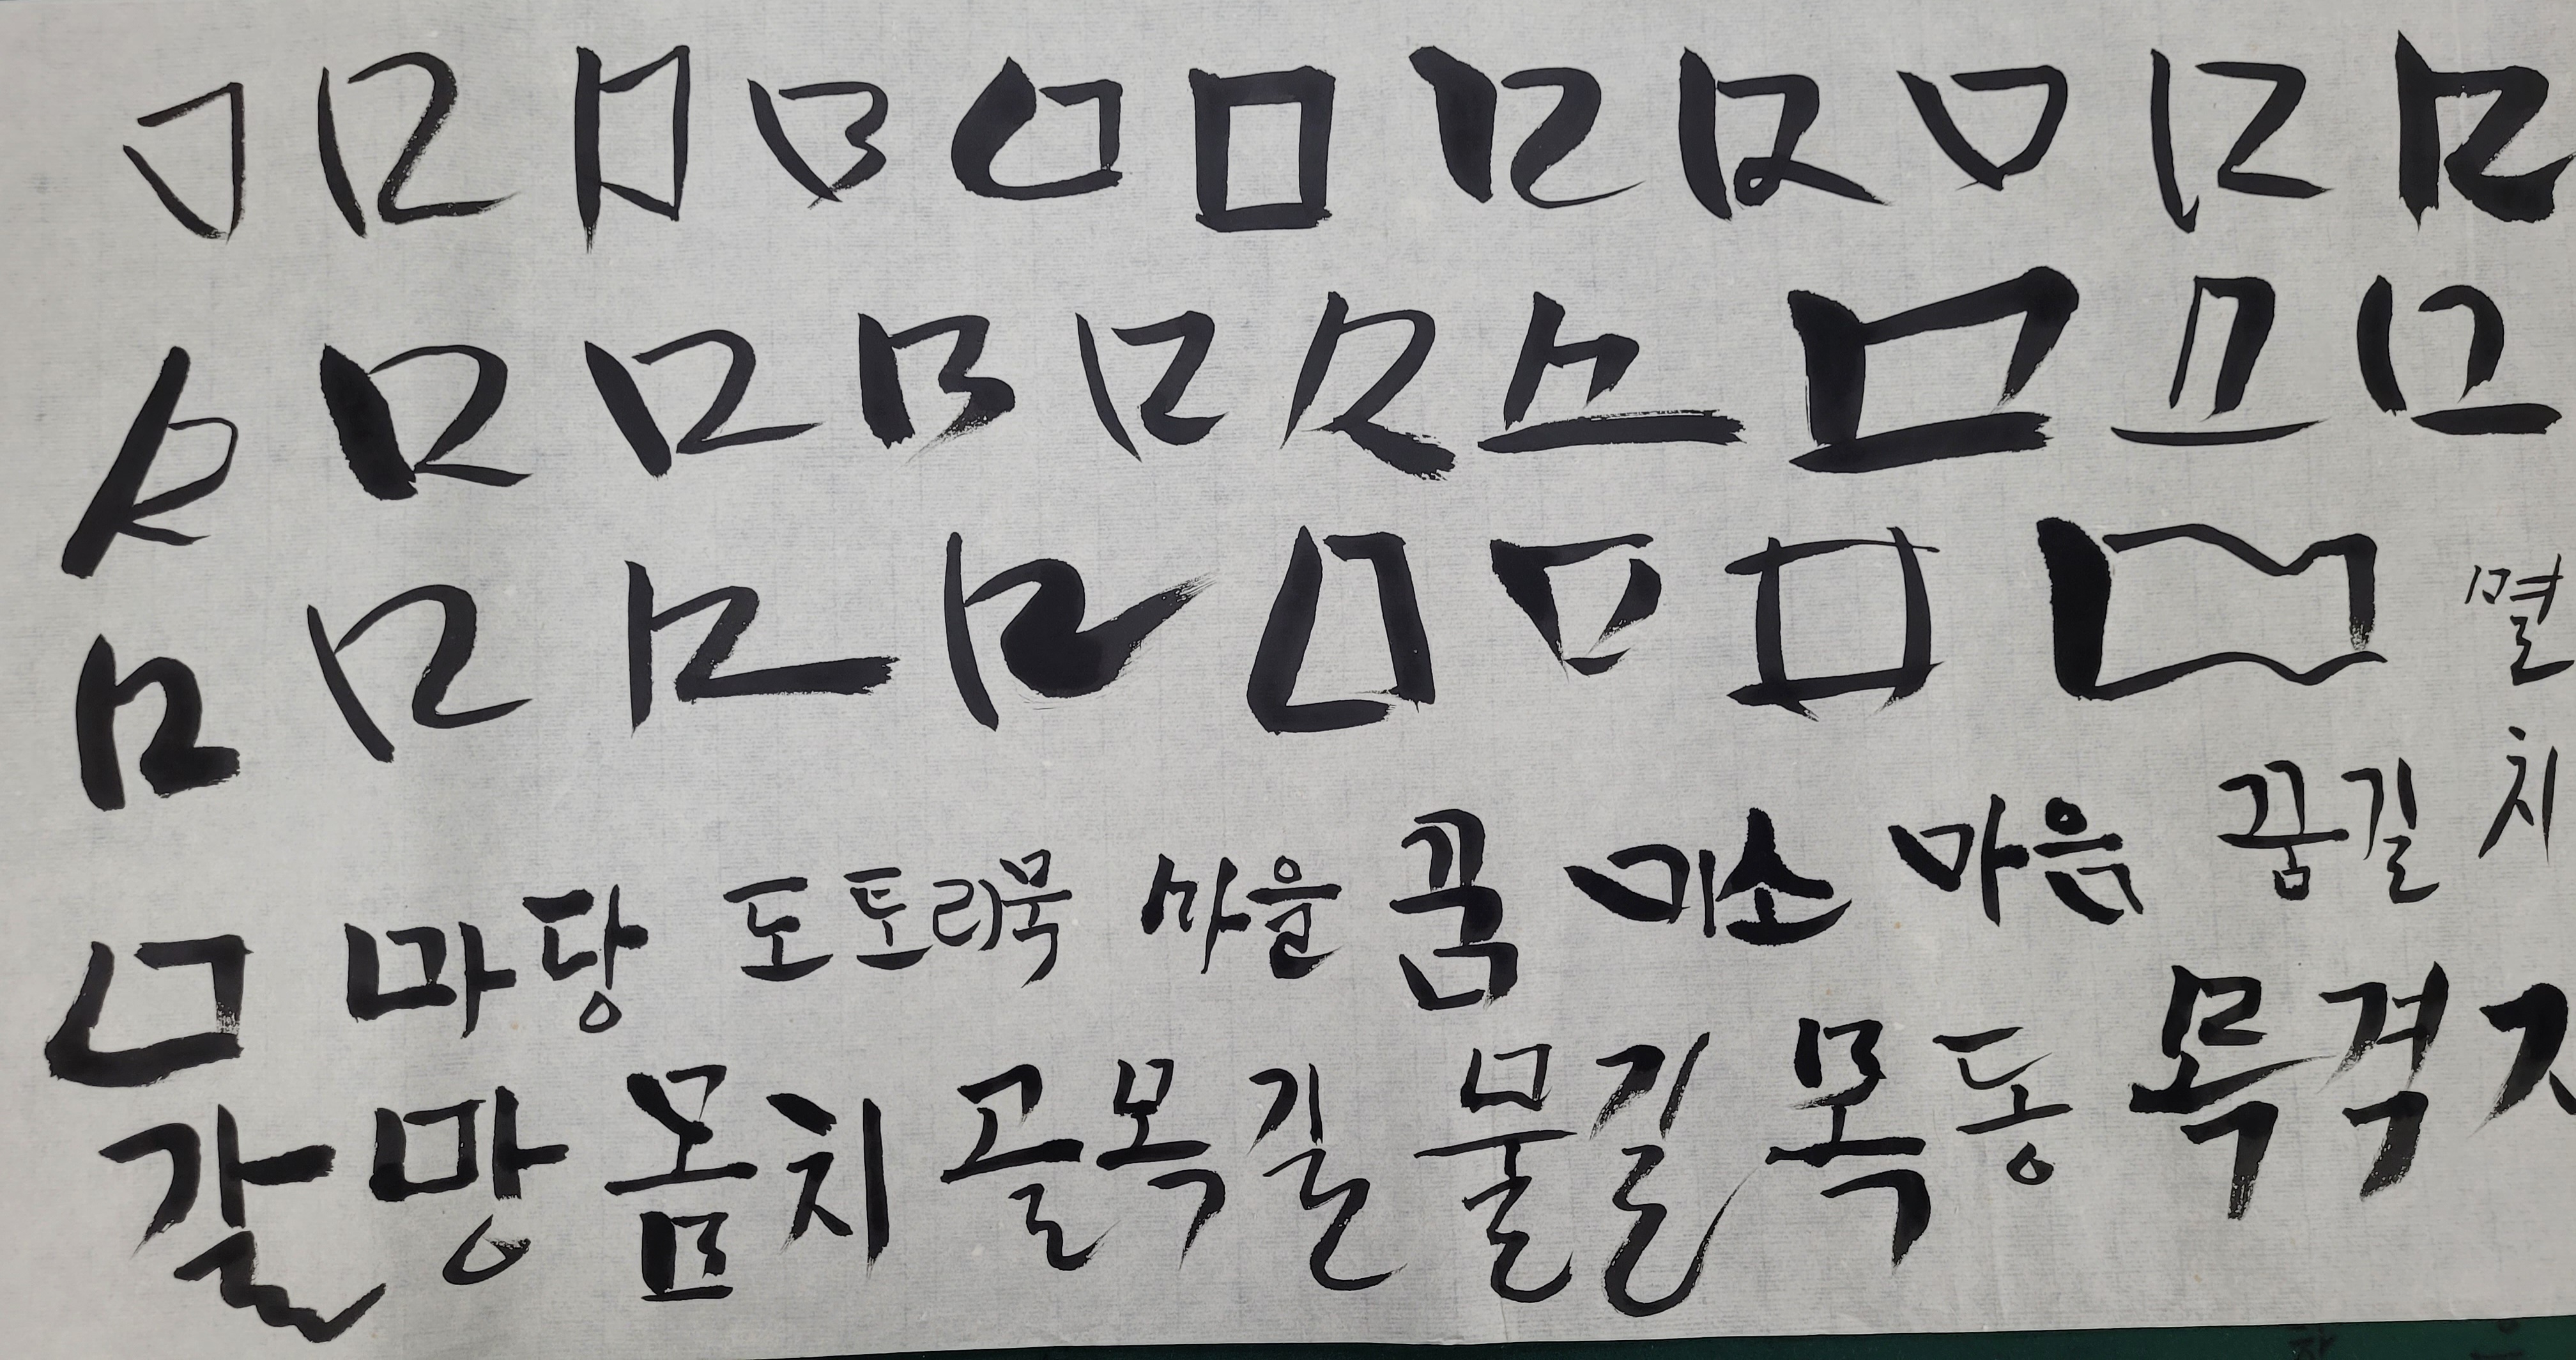 ㅁ ㅁ ㅁ ㅁ ㅁ ㅁ ㅁ ㅁ ㅁ ㅁ ㅁ
ㅁ ㅁ ㅁ ㅁ ㅁ ㅁ ㅁ ㅁ ㅁ ㅁ
ㅁ ㅁ ㅁ ㅁ ㅁ ㅁ ㅁ ㅁ 멸치
ㅁ 마당 도토리묵 마을 꿈 미소 마음 꿈길
갈망 몸치 골목길 물길 목동 목격